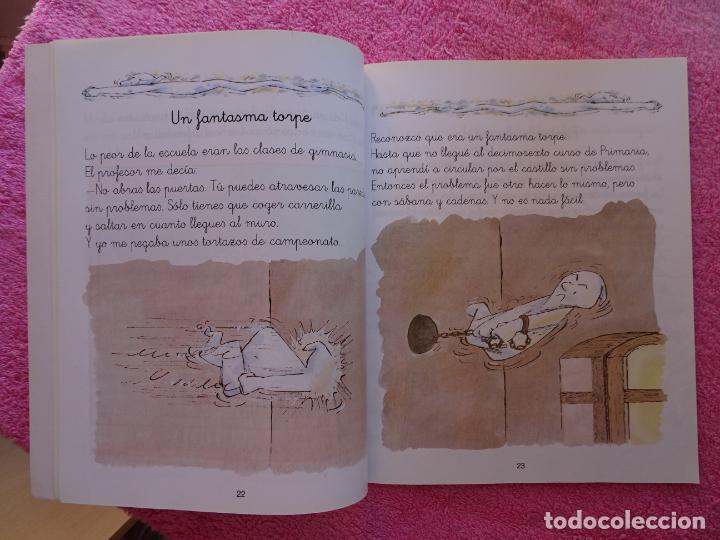 Un fantasma torpe
Lo peor de la escuela eran las clases de gimnasia.
El profesor me decía:
—No abras las puertas. Tú puedes atravesar las paredes
sin problemas. Sólo tienes que coger carrerilla
y saltar en cuanto llegues al muro.
Y yo me pegaba unos tortazos de campeonato.
22
Reconozco que era un fantasma torpe.
Hasta que no llegué al decimosexto curso de Primaria,
no aprendí a circular por el castillo sin problemas.
Entonces el problema fue otro: hacer lo mismo, pero
con sábana y cadenas. Y no es nada fácil.
23
todocoleccion.net